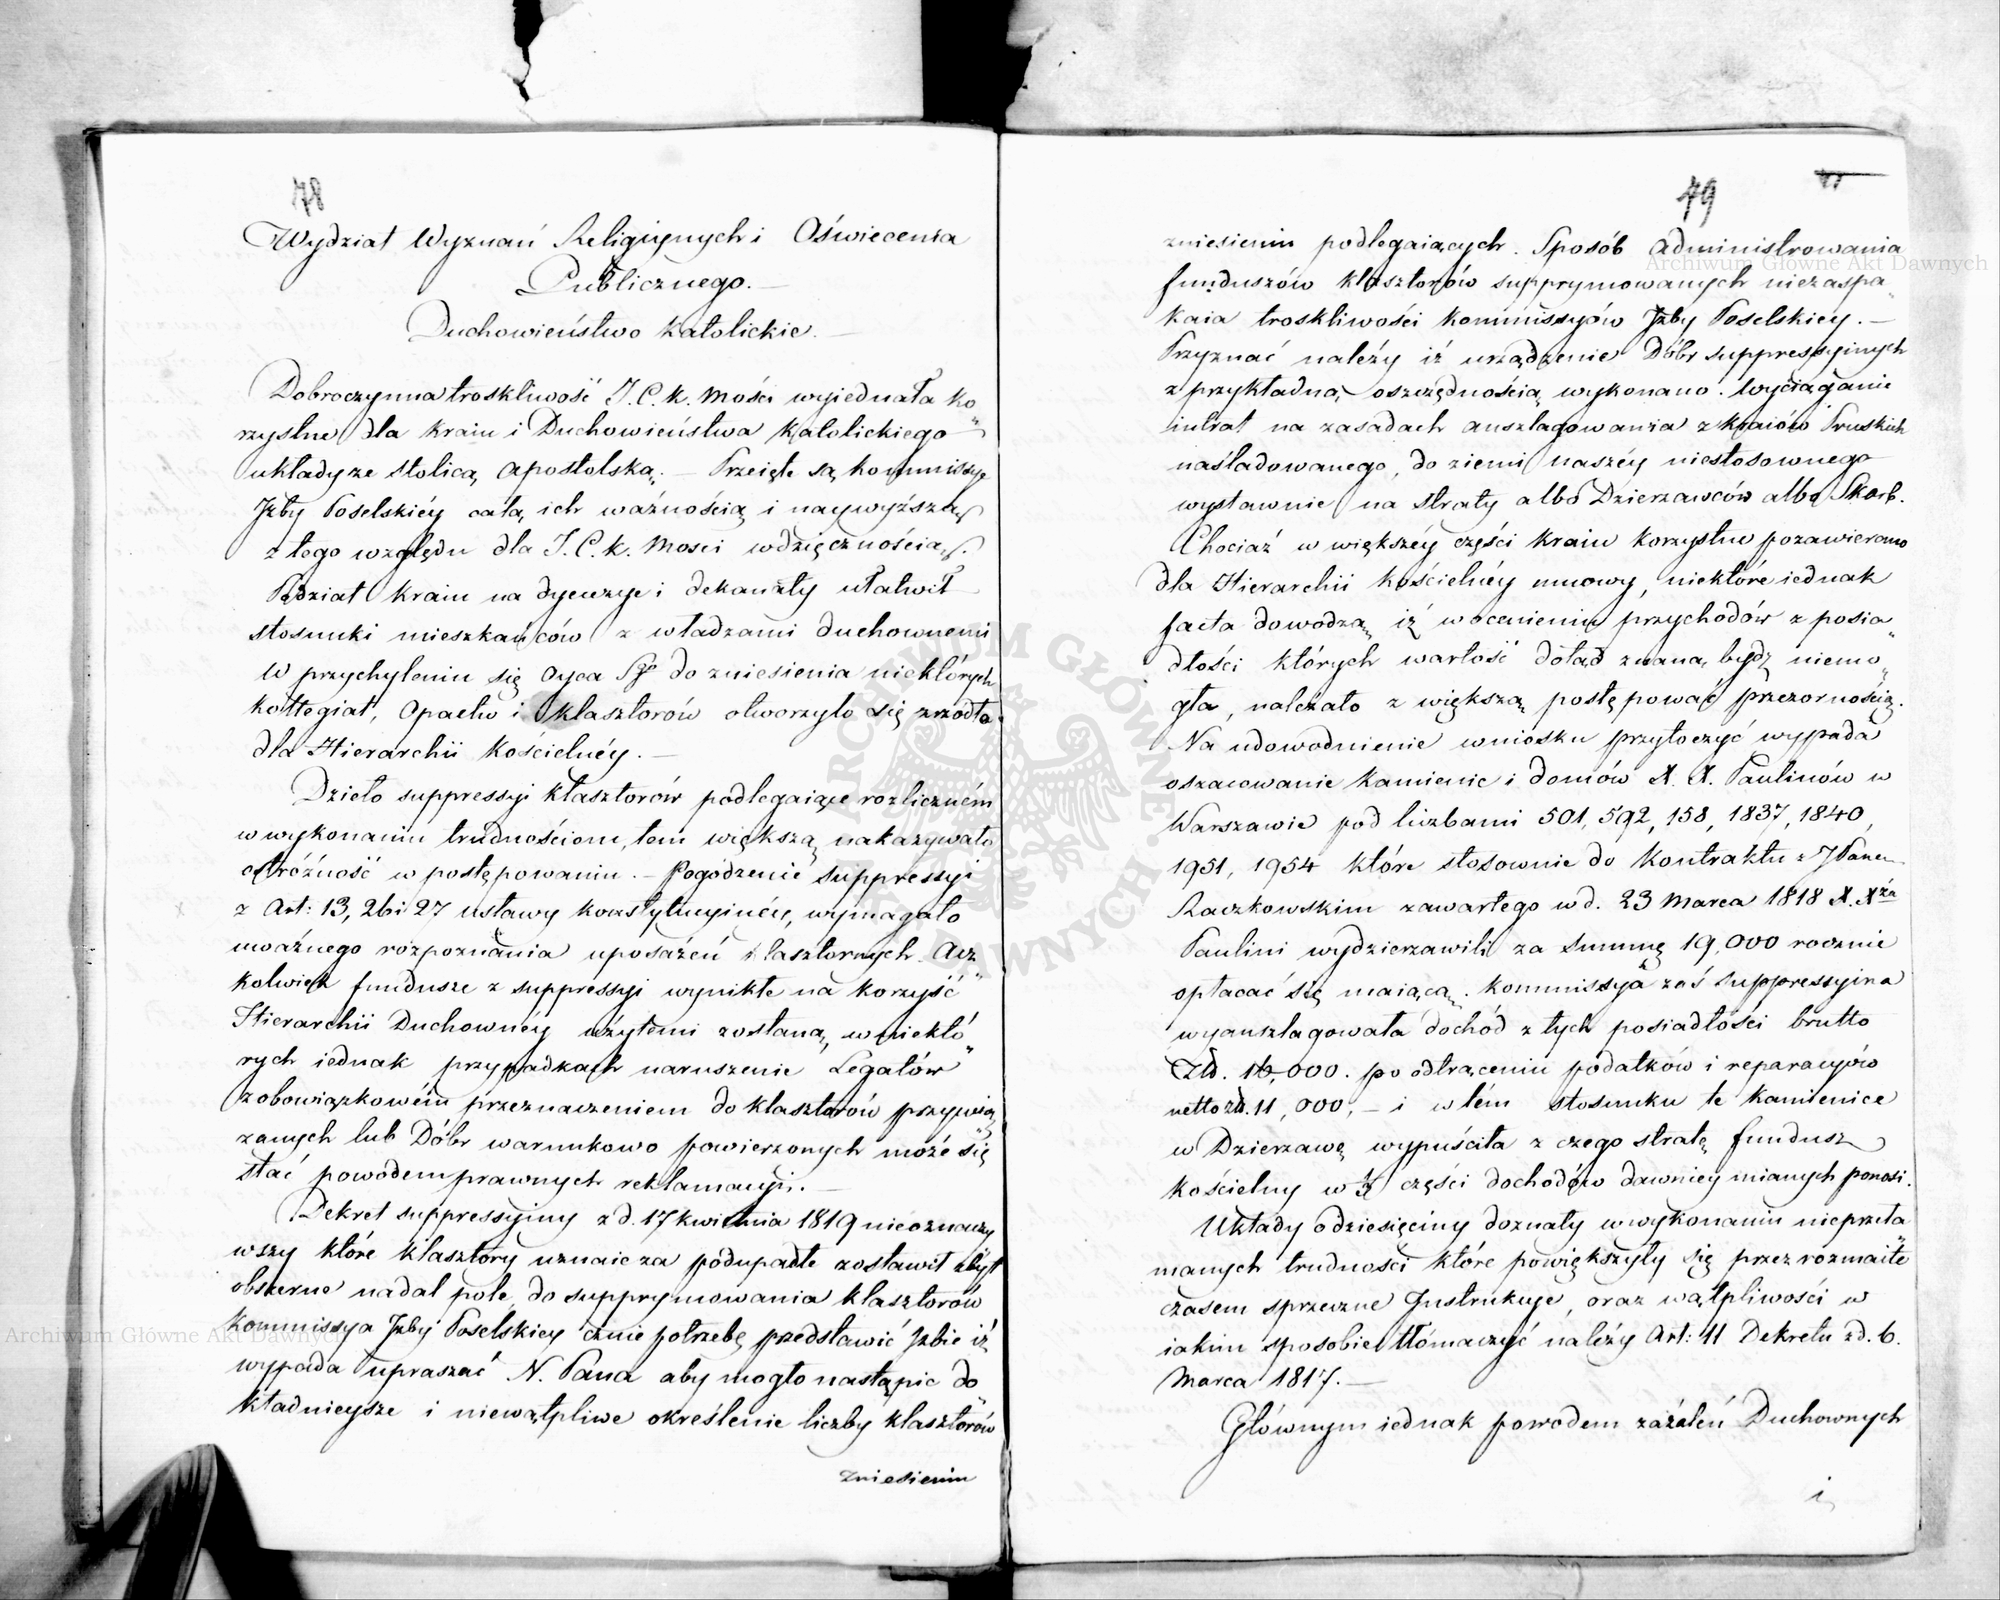 78
Wydział Wyznań Religiynych i Oświecenia
Publicznego. —
Duchowieństwo Katolickie. —
Dobroczynna troskliwość J. C. K. Mości wyiednała ko„
rzystne dla Kraiu i Duchowieństwa Katolickiego
układy ze stolicą Apostolską. — Przeięte są kommissye
Jzby Poselskiéy całą ich ważnością i naywyższą
z tego względu dla J. C. K. Mosci wdzięcznością.
Podział Kraiu na dyecezye i dekanaty ułatwił
stosunki mieszkańców z władzami duchownemi
W przychyleniu się Oyca Sgo do zniesienia niektórych
Kollegiat, Opactw i klasztorów otworzyło się zrzódło
dla Hierarchii Kościelnéy. —
Dzieło suppressyi klasztorów podlegaiące rozliczném
w wykonaniu trudnościom, tem większą nakazywało
ostróżność w postępowaniu. — Pogodzenie suppressyi
z Art: 13, 26 i 27 ustawy konstytucyinéy, wymagało
uważnego rozpoznania uposażeń klasztornych. Acz
kolwiek fundusze z suppressyi wynikłe na korzyść
Hierarchii Duchownéy użytemi zostaną, w niektó„
rych iednak przypadkach naruszenie Legatów
zobowiązkowém przeznaczeniem do klasztorów przywią„
zanych lub Dóbr warunkowo powierzonych może się
stać powodem prawnych reklamacyi. —
Dekret suppressyiny z d. 17 kwietnia 1819 nieoznaczy
wszy które klasztory uznaie za podupadłe zostawił zbyt
obszerne nadal pole do supprymowania klasztorów
Kommissya Jzby Poselskiey czuie potrzebę przedstawić Jzbie iż
wypada upraszać N. Pana aby mogło nastąpic do„
kładnieysze i niewątpliwe określenie liczby klasztorów
zniesieniu
79
zniesieniu podlegaiących. Sposób administrowania
funduszów klasztorów supprymowanych niezaspa„
kaia troskliwości kommissyów Jzby Poselskiey. —
Przyznać należy iż urządzenie Dóbr suppressyinych
z przykładną oszczędnością wykonano. Wyciąganie
intrat na zasadach anszlagowania z kraiów Pruskich
naśladowanego, do ziemi naszéy niestosownego
wystawnie na straty albo Dzierzawców albo Skarb.
Chociaż w większéy części kraiu korzystne pozawierano
dla Hierarchii kościelnéy umowy, niektóre iednak
facta dowodzą, iż w ocenieniu przychodów z posia„
dłości których wartość dotąd znaną bydź niemo„
gła, należało z większą postępować przezornością.
Na udowodnienie wniosku przytoczyć wypada
oszacowanie kamienic i domów X. X. Paulinów w
Warszawie pod liczbami 501, 592, 158, 1837, 1840,
1951, 1954 które stosownie do Kontraktu z JPanem
Raczkowskim zawartego w d. 23 Marca 1818 X. Xża
Paulini wydzierzawili za Summę 19,000 rocznie
opłacać się maiącą. Kommissya zaś Suppressyina
wyanszlagowała dochód z tych posiadłości brutto
Złd. 16,000. po odtrąceniu podatków i reparacyów
netto zł. 11,000, — i w tém stosunku te Kamienice
w Dzierzawę wypuściła z czego stratę fundusz
kościelny w części dochodów dawniey mianych ponosi.
Układy o dziesięciny doznały w wykonaniu nieprzeła„
manych trudności które powiększyły się przez rozmaite
czasem sprzeczne Jnstrukcye, oraz wątpliwości w
iakim sposobie tłómaczyć należy Art: 11 Dekretu z d. 6.
Marca 1817. —
Głównym iednak powodem zażaleń Duchownych
i
Archiwum Główne Akt Dawnych
Archiwum Główne Akt Dawnych